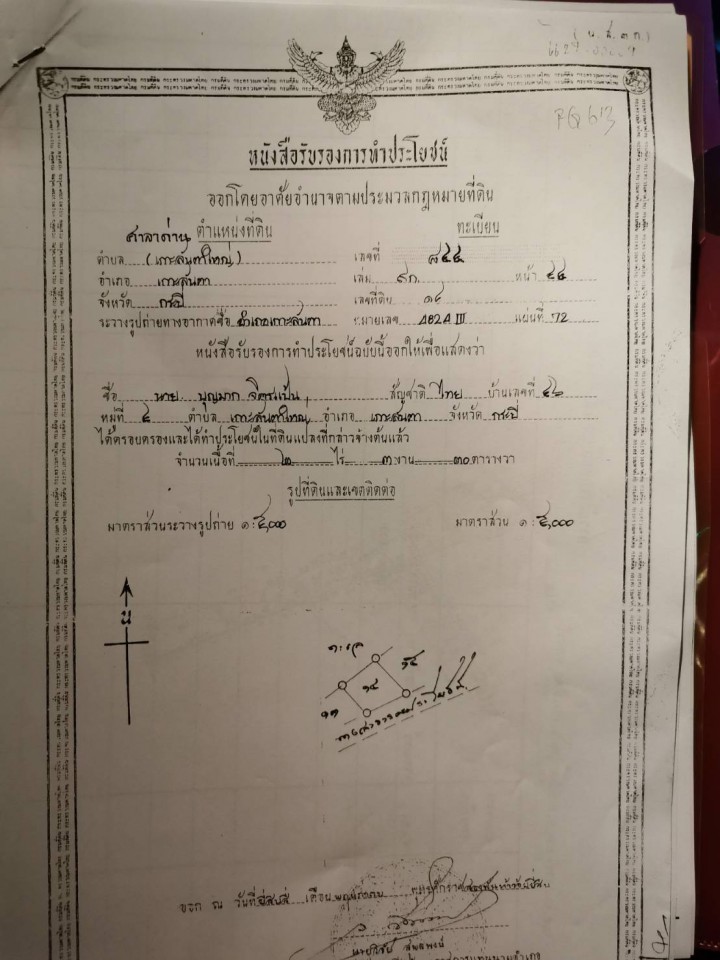 ( น.ส.๓ก )
PQ 613
หนังสือรับรองการทำประโยชน์
ออกโดยอาศัยอำนาจตามประมวลกฎหมายที่ดิน
ตำแหน่งที่ดิน ทะเบียน
ศาลาด่าน
ตำบล (เกาะลันตาใหญ่) เลขที่ ๘๔๔
อำเภอ เกาะลันตา เล่ม ๙ก. หน้า ๔๔
จังหวัด กระบี่ เลขที่ดิน ๑๔
ระวางรูปถ่ายทางอากาศชื่อ อำเภอเกาะลันตา หมายเลข 4824 III แผ่นที่ 72
หนังสือรับรองการทำประโยชน์ฉบับนี้ออกให้เพื่อแสดงว่า
ชื่อ นาย บุญมาก สัญชาติ ไทย บ้านเลขที่ ๔๖
หมู่ที่ ๔ ตำบล เกาะลันตาใหญ่ อำเภอ เกาะลันตา จังหวัด กระบี่
ได้ครอบครองและได้ทำประโยชน์ในที่ดินแปลงที่กล่าวข้างต้นแล้ว
จำนวนเนื้อที่ ๒ ไร่ ๓ งาน ๓๐ ตารางวา
รูปที่ดินและเขตติดต่อ
มาตราส่วนระวางรูปถ่าย ๑ : ๕,๐๐๐ มาตราส่วน ๑ : ๕,๐๐๐
น
ทะเล
๑๕
๑๔
๑๓
ทางสาธารณประโยชน์
ออก ณ วันที่ เดือน พฤษภาคม พุทธศักราช